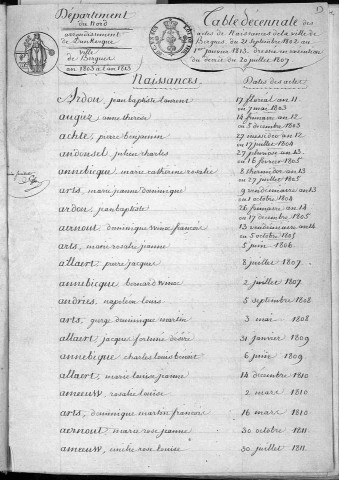 Département
du Nord
arrondissement
de Dunkerque
ville
de Bergues
an 1803 à l'an 1813
Table décennale des
actes de Naissances de la ville de
Bergues, du 21 Septembre 1802 au
1er janvier 1813, dressée en exécution
du décret du 20 juillet 1807
Naissances
Dates des actes
Ardou, jean baptiste laurent 17 floréal an 11
ou 7 mai 1803
augez, anne thérèse 14 frimaire an 12
ou 5 décembre 1803
achte, pierre benjamin 29 messidor an 12
ou 17 juillet 1804
andousel, julien charles 27 pluviose an 13
ou 16 février 1805
annebicque, marie catherine rosalie 8 thermidor an 13
ou 27 juillet 1805
arts, marie jeanne dominique 9 vendemiaire an 13
ou 1 octobre 1804
ardou, jean baptiste 26 frimaire an 14
ou 17 décembre 1805
aernout, dominique françois 13 vendemiaire an 14
ou 5 octobre 1805
arts, marie rosalie jeanne 5 juin 1806
allaert, pierre jacques 8 juillet 1807
annebicque, bernard 2 juillet 1807
andries, napoleon louis 5 septembre 1808
arts, george dominique martin 3 mai 1808
allaert, jacques fortuné désiré 31 janvier 1809
annebique, charles louis benoit 6 juin 1809
allaert, marie louise jeanne 14 décembre 1810
ameeuw, rosalie louise 2 mars 1810
arts, dominique martin françois 16 mars 1810
aernout, marie rose jeanne 30 octobre 1811
ameeuw, rose louise 30 juillet 1811